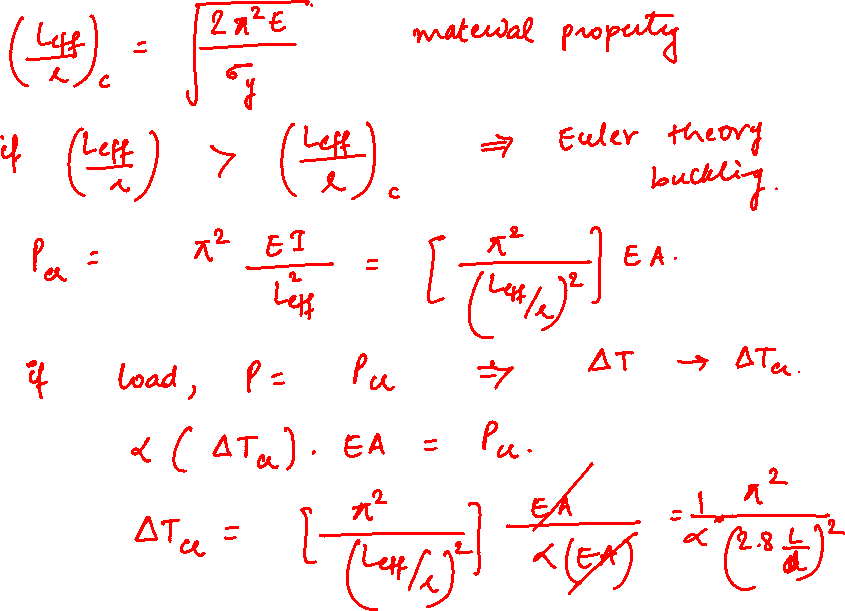 (Leff/r)c = √(2π²E/σy) material property
if (Leff/r) > (Leff/r)c ⇒ Euler theory buckling.
Pcr = π² EI/L²eff = [π²/(Leff/r)²] EA.
if load, P = Pcr ⇒ ΔT → ΔTcr.
α (ΔTcr). EA = Pcr.
ΔTcr = [π²/(Leff/r)²] EA/α(EA) = 1/α · π²/(2.8 L/d)²